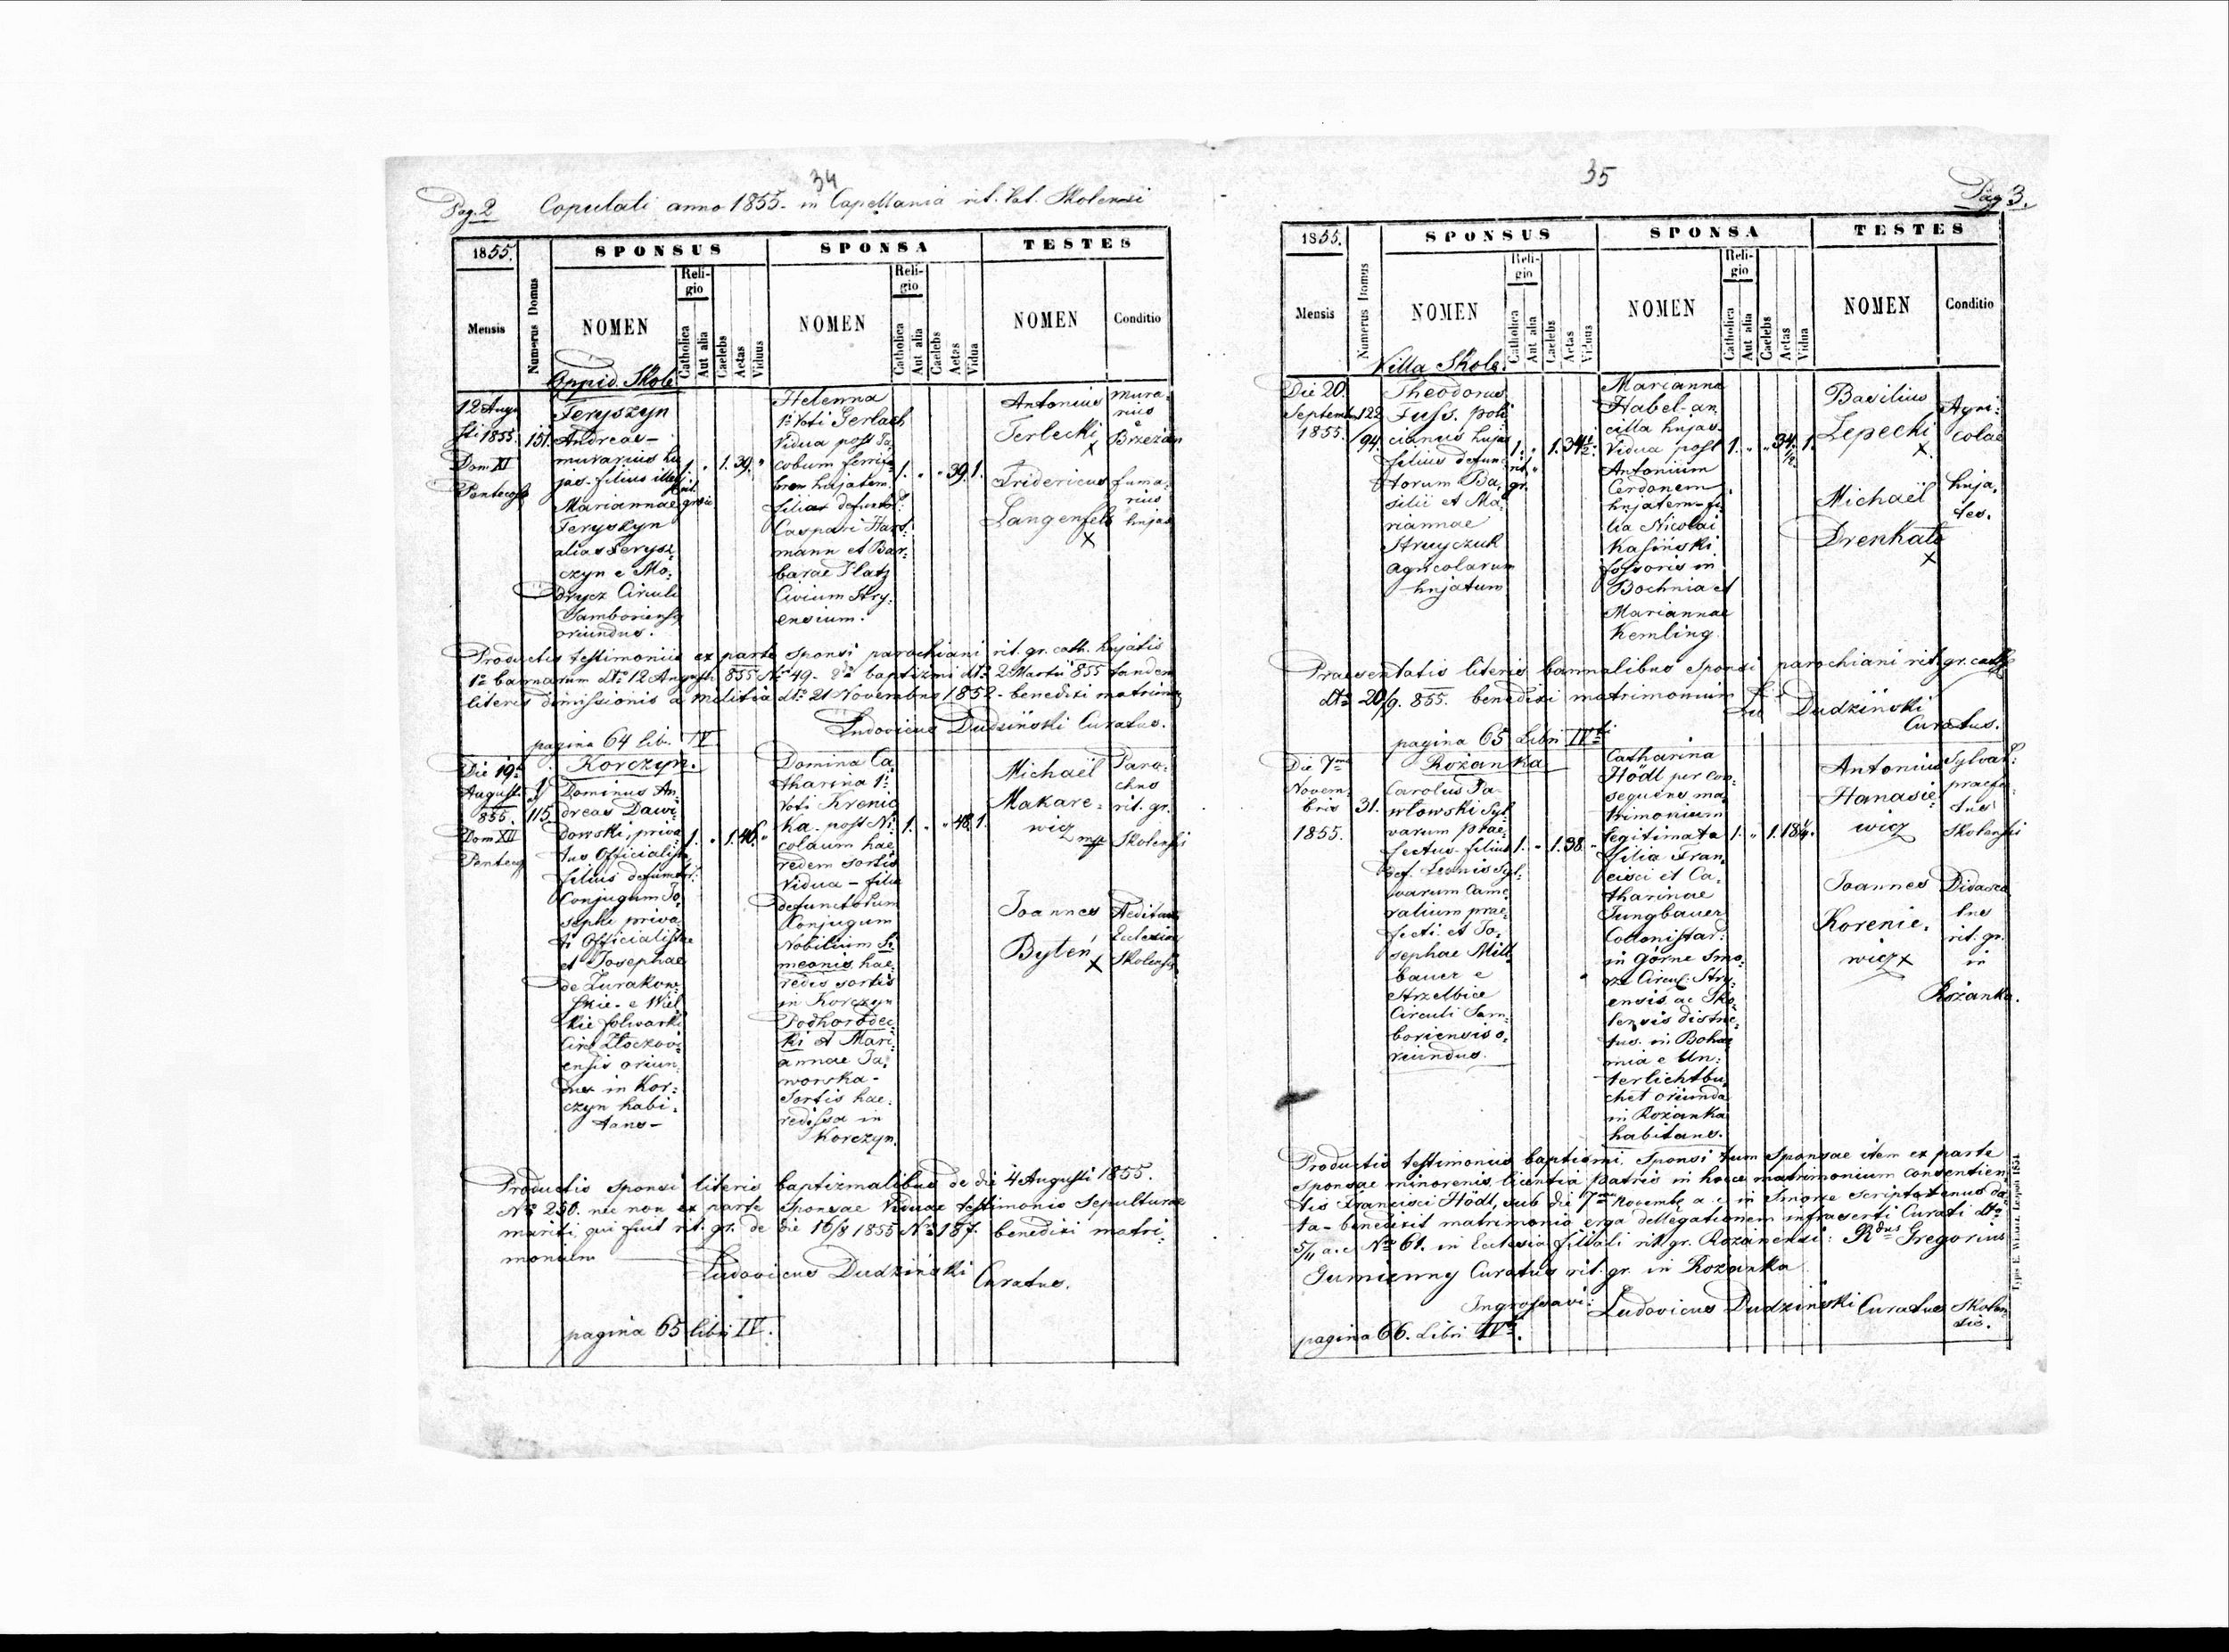 34
Pag. 2 Copulati anno 1855. in Capellania rit. lat. Skolensi
1855. SPONSUS SPONSA TESTES
Mensis Numerus Domus NOMEN Religio Catholica Aut alia Caelebs Aetas Viduus NOMEN Religio Catholica Aut alia Caelebs Aetas Vidua NOMEN Conditio
Oppid. Skole
12 Augu
sti 1855.
Dom. XI
Pentecos
151.
Feryszyn
Andreas-
murarius hu
jas- filius illeg.
Mariannae
Feryszyn
alias Ferysz
czyn e Mo:
drycz Circuli
Samboriensis
oriundus.
1. " 1. 39. "
rit.
graeci
Helenna
1i Voti Gerlach
Vidua post Ja
cobum ferrifa
brum hujatem.
filia defunctor:
Caspari Hart
mann et Bar:
barae Platz
Civium Stry:
ensium.
1. " " 39. 1.
Antonius
Terlecki
x
Fridericus
Langenfeld
x
mura:
rius
e
Brzezan
fuma:
rius
hujas
Productis testimoniis ex parte sponsi parochiani rit. gr. cath. hujatis
1o bannorum dto 12 Augusti 855 No 49. 2do baptizmi dto 2 Martii 855 tandem
literis dimissionis a militia dto 21 Novembris 1852 - benedixi matrim
Ludovicus Dudziński Curatus.
pagina 64 lib. IV
Korczyn.
Die 19a
August.
855.
Dom XII
Pentecos
115.
Dominus An:
dreas Dawi:
dowski, priva
tus Officialista
filius defunctor:
Conjugum Jo:
sephi priva
ti Officialistae
et Josephae
de Żurakow:
skie. e Wiel
kie folwarki
Circ. Złoczovi
ensis oriun
dus in Kor:
czyn habi:
tans-
1. " 1. 46. "
Domina Ca
tharina 1i
Voti Krenic
ka- post Ni:
colaum hae
redem sortis
Vidua - filia
defunctorum
Conjugum
Nobilium Si
meonis hae:
redis sortis
in Korczyn
Podhorodec
ki et Mari
annae Ja:
worska-
Sortis hae:
redissa in
Korczyn.
1. " " 48. 1.
Michaël
Makare:
wicz mp
Joannes
Byteń
x
Paro:
chus
rit. gr.
Skolensis
Aedituus
Ecclesiae
Skolensis
Productis sponsi literis baptizmalibus de die 4 Augusti 1855.
No 250. nec non ex parte Sponsae Viduae testimonio Sepulturae
mariti, qui fuit rit. gr. de die 16/8 1855 No 187. benedixi matri:
monium
Ludovicus Dudziński Curatus.
pagina 65 libri IV.
35
Pag 3.
1855. SPONSUS SPONSA TESTES
Mensis Numerus Domus NOMEN Religio Catholica Aut alia Caelebs Aetas Viduus NOMEN Religio Catholica Aut alia Caelebs Aetas Vidua NOMEN Conditio
Villa Skole.
Die 20.
Septemb
1855.
122
/94.
Theodorus
Fuss. poli
cianus hujas
filius defunc
torum Ba:
silii et Ma:
riannae
Struyczuk
agricolarum
hujatum
1. " 1. 34 1/2.
rit.
gr.
Marianna
Habel- an
cilla hujas.
Vidua post
Antonium
Cerdonem
hujatem- fi:
lia Nicolai
Kasinski
fossoris in
Bochnia et
Mariannae
Kemling.
1. " " 34 1/2. 1.
Basilius
Lepecki
x
Michaël
Drenkalo
x
Agri:
colae
huja:
tes.
Praesentatis literis bannalibus sponsi parochiani rit. gr. cath
dto 20/9. 855. benedixi matrimonium Lu Dudziński
Curatus.
pagina 65 Libri IVti
Rożanka
Die 7ma
Novem:
bris
1855.
31.
Carolus Pa
włowski Syl
varum prae:
fectus- filius
def. Leonis Syl:
varum Came
ralium prae:
fecti et Jo:
sephae Mill
bauer e
Strzelbice
Circuli Sam:
boriensis o:
riundus.
1. " 1. 38. "
Catharina
Hödl per con:
sequens ma:
trimonium
legitimata
filia Fran:
cisci et Ca:
tharinae
Jungbauer
Colonistar:
in górne Smo:
rze Circuli Stry:
ensis ac Sko:
lensis distric:
tus. in Bohe
mia e Un:
terlichtbu:
chet oriunda
in Rożanka
habitans.
1. " 1. 18 1/4.
Antonius
Hanasie:
wicz
Joannes
Korenie.
wicz x
Sylvar:
praefe
ctus
Skolensis
Didasca
lus
rit. gr.
in
Rożanka.
Productis testimoniis baptismi Sponsi tum Sponsae item ex parte
Sponsae minorenis licentia Patris in hocce matrimonium consentien
tis Francisci Hödl, sub die 7ma Novembr. a. c. in Smorze scripto tenus da
ta- benedixit matrimonio erga dellegationem infrascripti Curati dto
5/11 a. c. No 61. in Ecclesia filiali rit. gr. Rozanensi: Rdus Gregorius
Gumienny Curatus rit. gr. in Rozanka
Ingrossavi: Ludovicus Dudziński Curatus Skolen
sis.
pagina 66. Libri IVti.